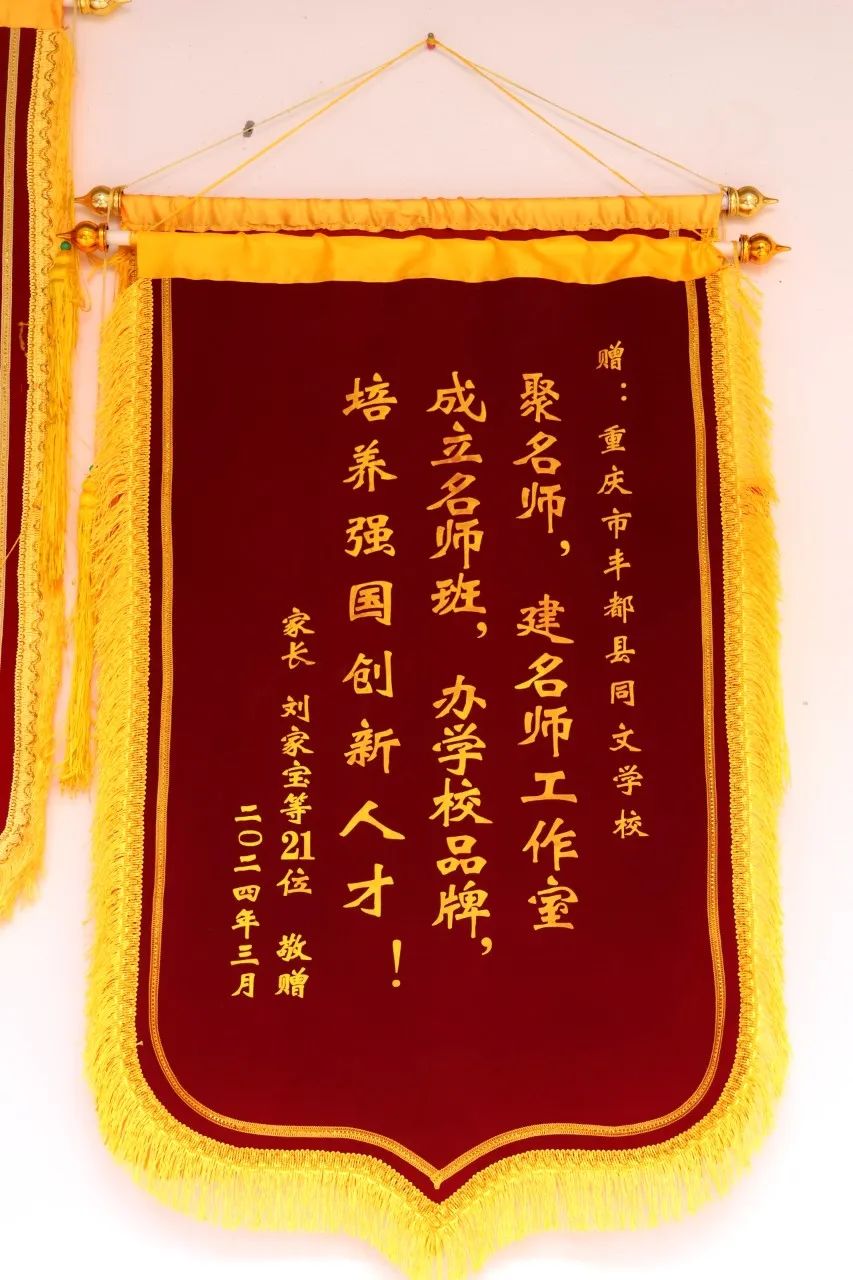 赠：重庆市丰都县同文学校
聚名师，建名师工作室
成立名师班，办学校品牌，
培养强国创新人才！
家长 刘家宝等21位 敬赠
二〇二四年三月